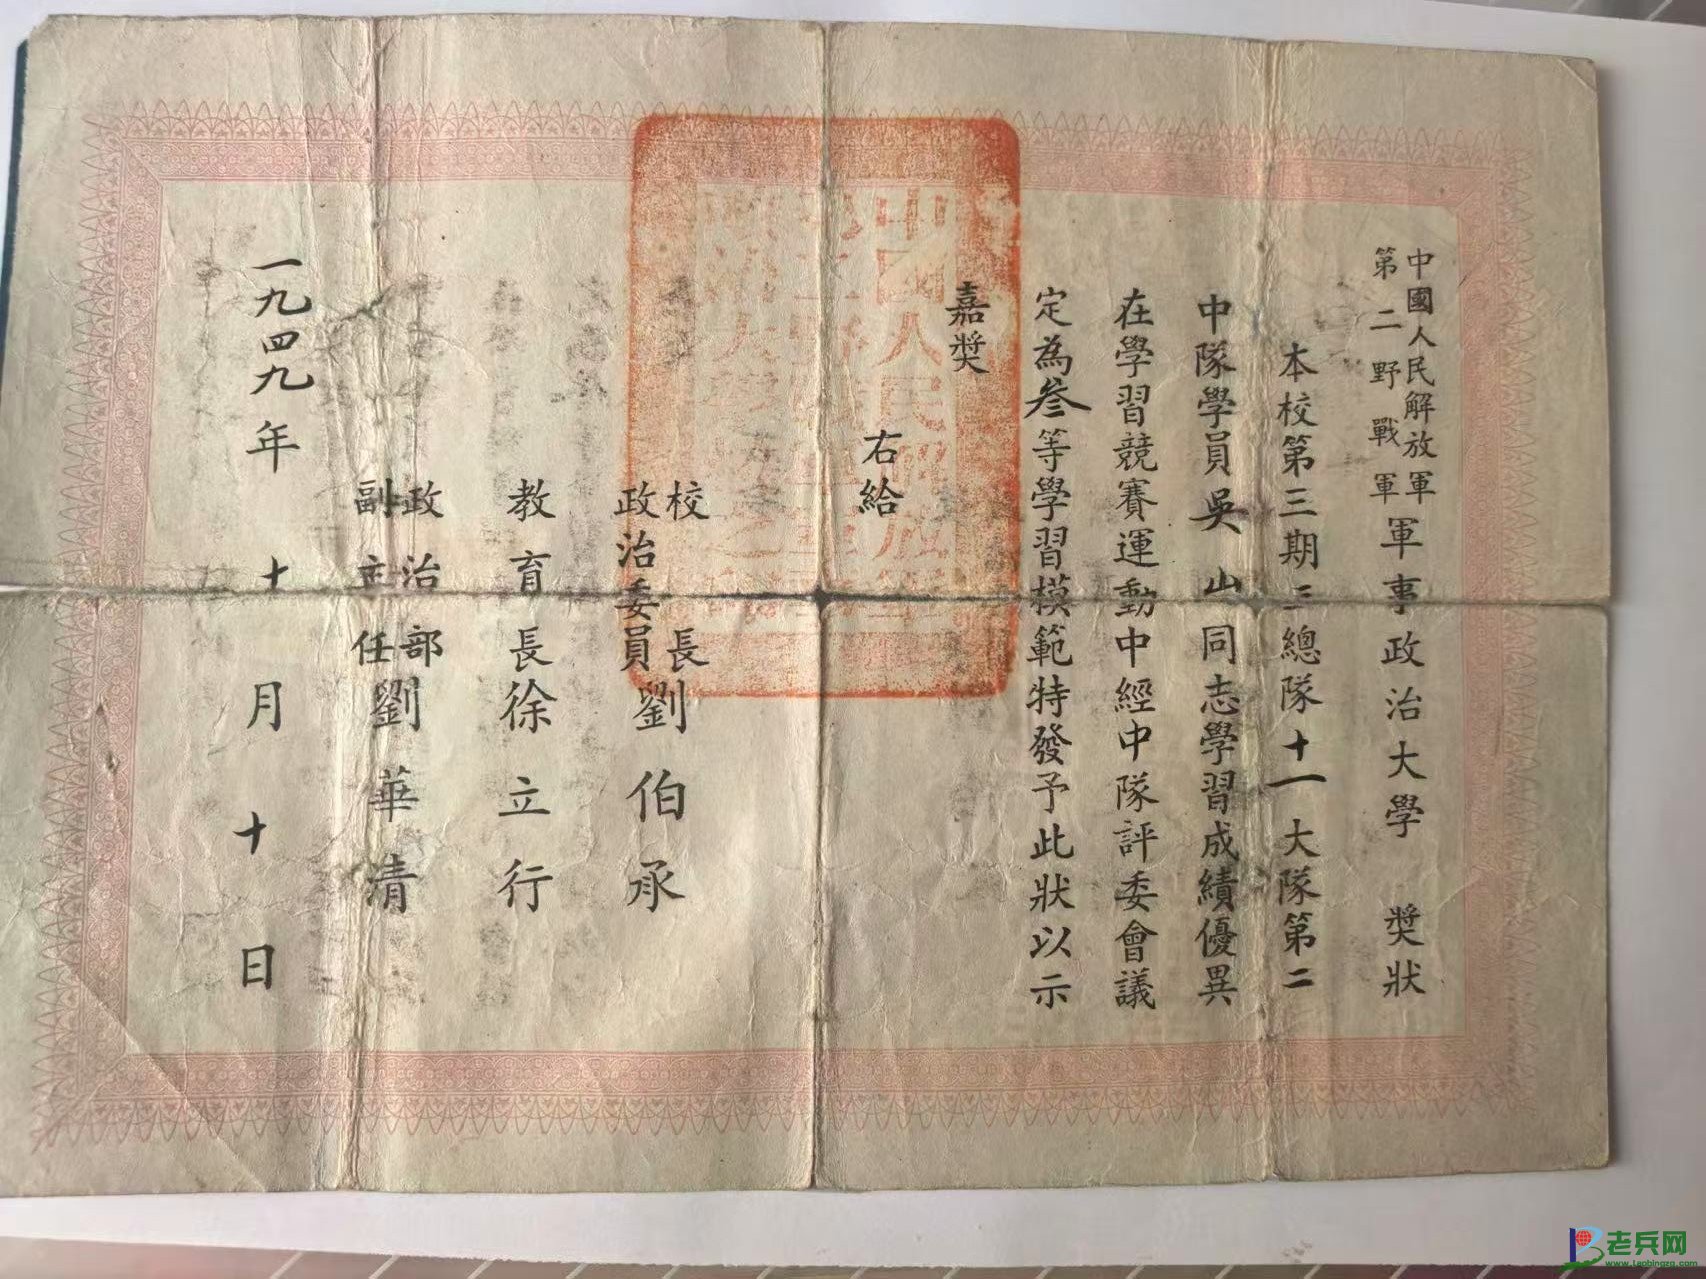 中國人民解放軍
第二野戰軍
軍事政治大學 獎狀
本校第三期三總隊十一大隊第二
中隊學員吳山同志學習成績優異
在學習競賽運動中經中隊評委會議
定為叁等學習模範特發予此狀以示
嘉獎
右給
校長
政治委員
劉伯承
教育長徐立行
政治部
副主任
劉華清
一九四九年十月十日
中國人民解放軍
老兵网
www.laobingzg.com